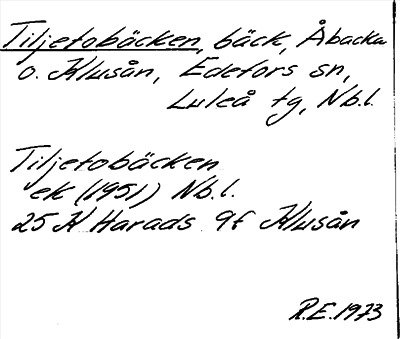 Tiljetobäcken, bäck, Åbacka
o. Klusån, Edefors sn,
Luleå tg, Nb.l.
Tiljetobäcken
ek (1951) Nb.l.
25 K Harads 9f Klusån
R.E. 1973